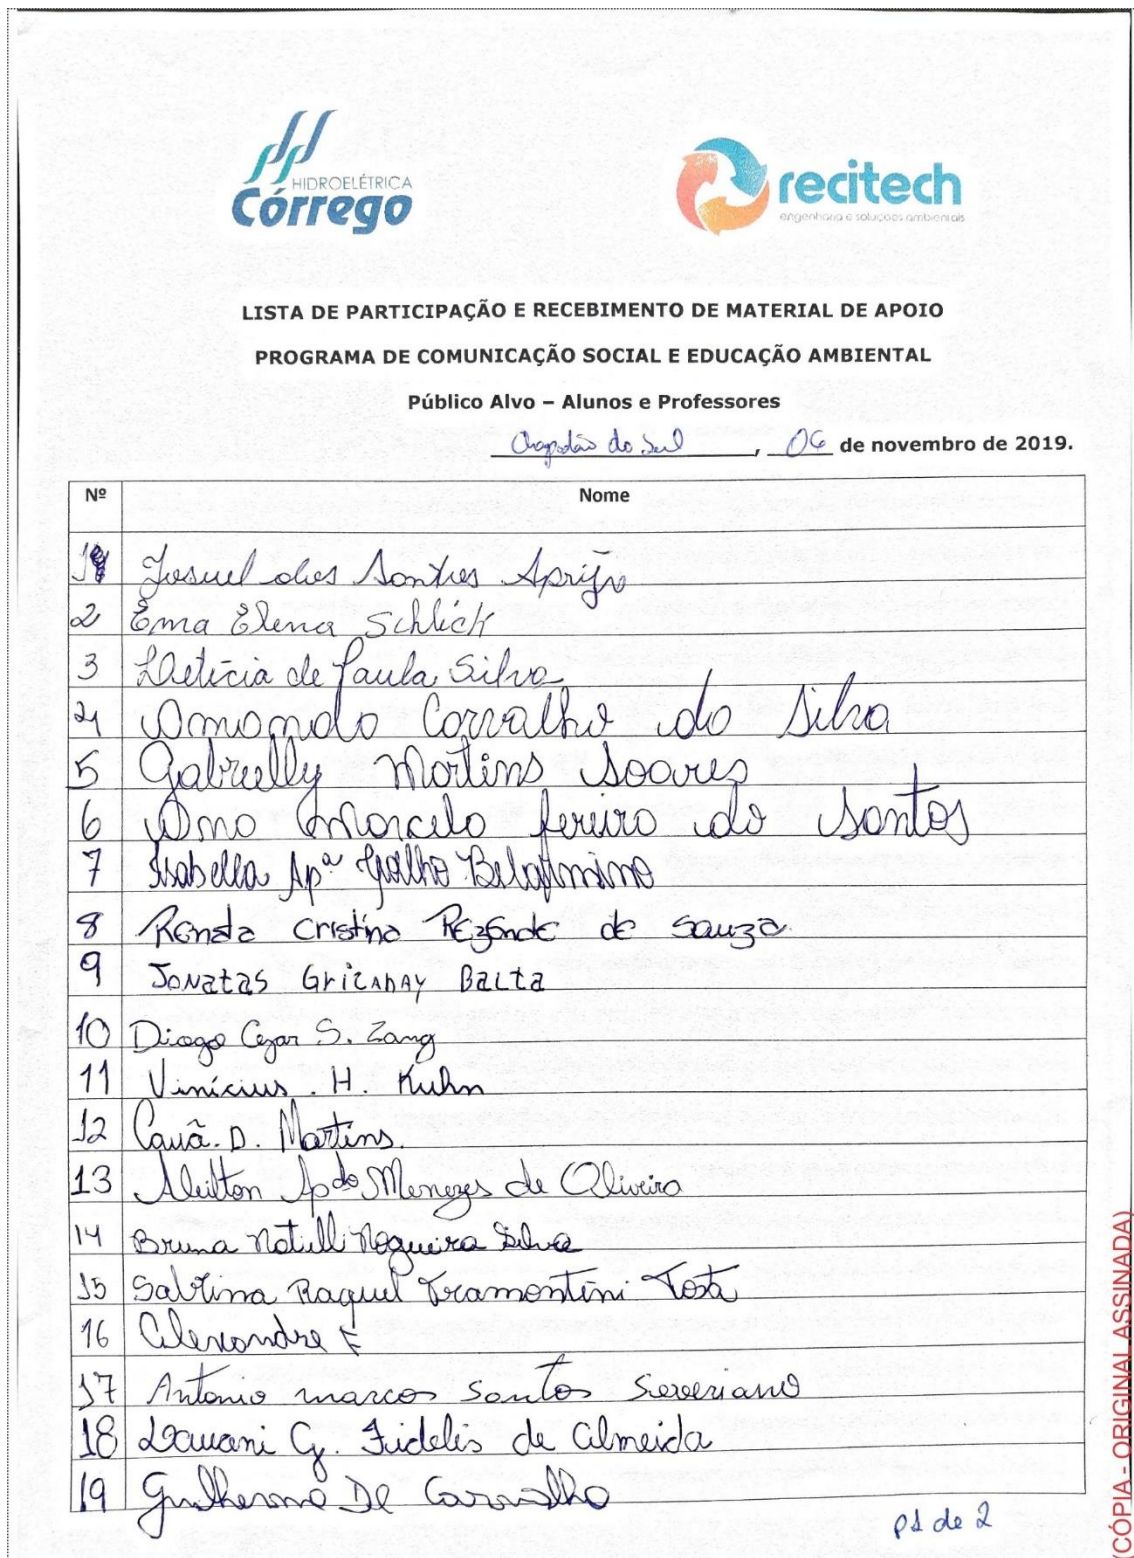 HIDROELÉTRICA
Córrego
recitech
engenharia e soluções ambientais
LISTA DE PARTICIPAÇÃO E RECEBIMENTO DE MATERIAL DE APOIO
PROGRAMA DE COMUNICAÇÃO SOCIAL E EDUCAÇÃO AMBIENTAL
Público Alvo – Alunos e Professores
Chapadão do Sul, 06 de novembro de 2019.
Nº Nome
1 Josuel dos Santos Aprijo
2 Ema Elena Schlick
3 Leticia de Paula Silva
4 Amanda Carvalho da Silva
5 Gabrielly Martins Soares
6 Ana Marcela fereira do Santos
7 Isabella Apª Galho Belarmino
8 Renata Cristina Rezende de Souza
9 Jonatas Balta
10 Diogo Cezar S. Zang
11 Vinícius. H. Kuhn
12 Cauã. D. Martins.
13 Aleilton Apdo Menezes de Oliveira
14 Bruna Natielli Nogueira Silva
15 Sabrina Raquel Tramontini Tosta
16 Alexandre F
17 Antonio marcos Santos Severiano
18 Lauani G. Fidelis de Almeida
19 Guilherme De Carvalho
p1 de 2
(CÓPIA - ORIGINAL ASSINADA)